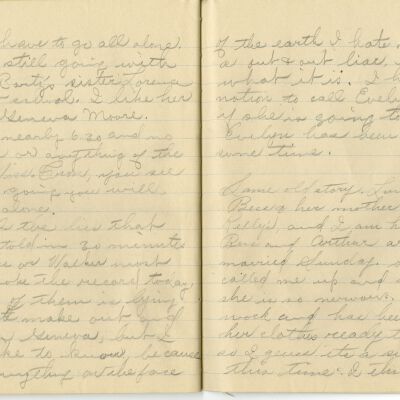 have to go all alone.
still going with
sister Lorence
school. I like her
Geneva Moore.
nearly 6:30 and no
or anything of the
you see
going you will
alone.
the lies that
told in 30 minutes
or Walker most
broke the record today.
of them is lying
make out and
Geneva, but I
like to know, because
anything on the face
of the earth I hate
a out & out liar,
what it is. I
notion to call Evelyn
if she is going to
Evelyn has been
some time.
Same old story.
Bess & her mother
Kelly's, and I am
Bess and Arthur
married Sunday.
called me up and
she is so nervous.
work and has been
her clothes ready
so I guess its a
this time. I